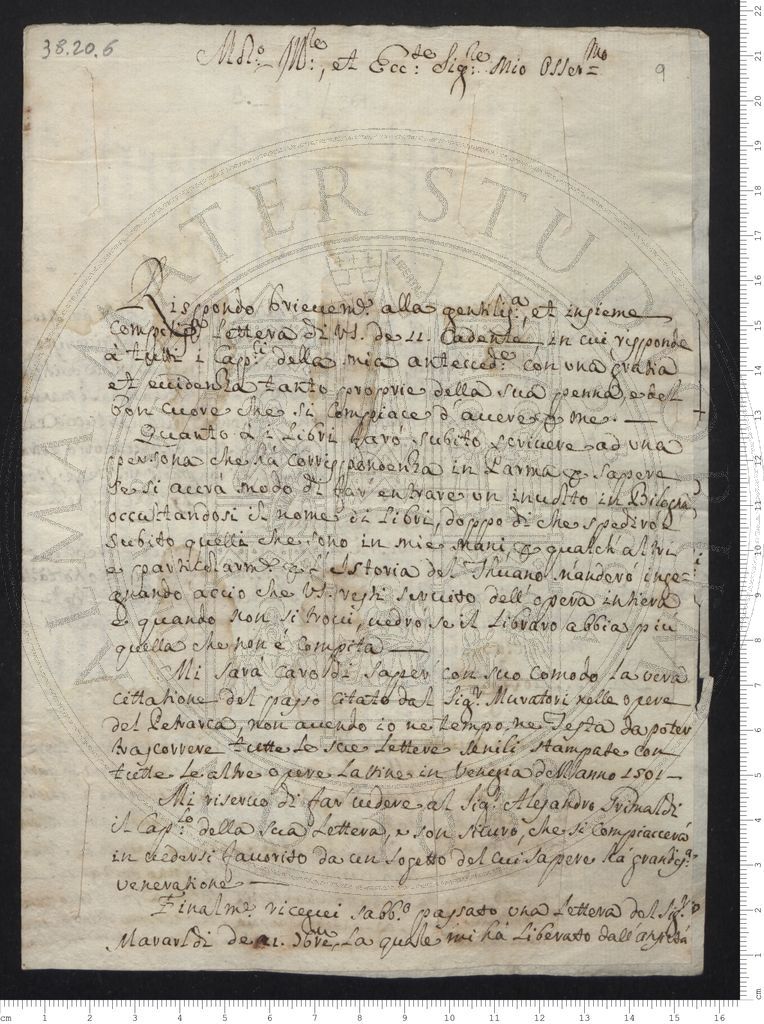 38.20.6
9
Mol.º Ill.re, et Ecc.te Sig.re Mio Osser.mo
Rispondo brievem.e alla gentiliss.a, et insieme
Lettera di VS. de 11. Cadente in cui risponde
à tutti i Cap.li della mia anteced.e con una grazia
et evidenza tanto proprie della sua penna, e del
bon cuore che si compiace d'avere p me. —
Quanto à i Libri farò subito scrivere ad una
persona che hà corrispondenza in Parma p sapere
se si averà modo di far entrare un involto in Bologna
occultandosi il nome di libri, doppo di che spedirò
subito quelli che sono in mie mani, e qualch'altri
e particolarm.e p l'Istoria del Thuano
quando acciò che VS. resti servito dell'opera intiera
e quando non si trovi, vedrò se il Libraro abbia più
quella che non é compita —
Mi sarà caro di saper con suo comodo la vera
cittazione del passo citato dal Sig.r Muratori nelle opere
del Petrarca, non avendo io ne tempo, ne Testa da poter
trascorrere tutte le sue lettere senili stampate con
tutte le altre opere Lattine in Venezia dell'anno 1501 —
Mi riservo di far vedere al Sig.r Alessandro Grimaldi
il Cap.lo della sua lettera, e son sicuro, che si compiacerà
in vedersi favorito da un sogetto del cui sapere hà grandiss.a
veneratione —
Finalm.e ricevei sabb.o passato una Lettera del Sig.r
Maraldi de 21. 9bre, La quale mi hà liberato dall'ansietà
ALMA MATER STUDIORUM